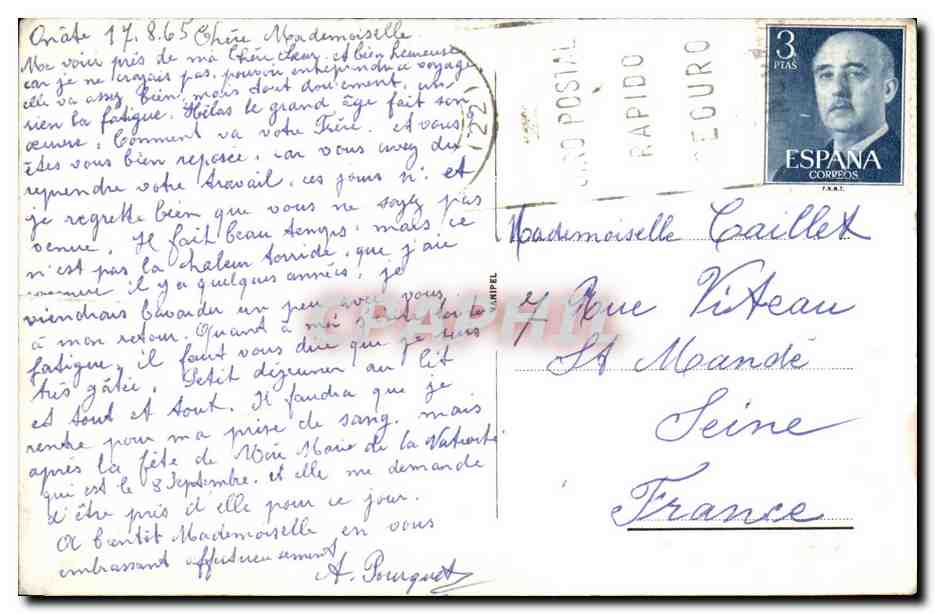 Onâte 17.8.65 Chère Mademoiselle
Me voici près de ma Chère sœur, et bien heureuse
car je ne croyais pas pouvoir entreprendre ce voyage
elle va assez bien, mais tout doucement, un
rien la fatigue. Hélas le grand âge fait son
œuvre. Comment va votre Frère. et vous
êtes vous bien reposée, car vous avez du
reprendre votre travail, ces jours ci et
je regrette bien que vous ne soyez pas
venue. Il fait beau temps, mais ce
n'est pas la chaleur torride, que j'aie
il y a quelques années, je
viendrais bavarder un peu avec vous
à mon retour, Quant à moi
fatigue, il faut vous dire que je suis
très gâtée. Petit déjeuner au lit
et tout et tout. Il faudra que je
rentre pour ma prise de sang, mais
après la fête de Mère Marie de la Nativité
qui est le 8 Septembre, et elle me demande
d'être près d'elle pour ce jour.
A bientôt Mademoiselle en vous
embrassant affectueusement
A. Pourquet
POSTAL
RAPIDO
SEGURO
3
PTAS
ESPAÑA
CORREOS
F.N.M.T.
Mademoiselle Caillet
7 Rue Viteau
St Mandé
Seine
France
CPAPHIL